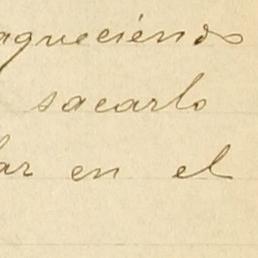 aqueciéndo
sacarlo
lar en el